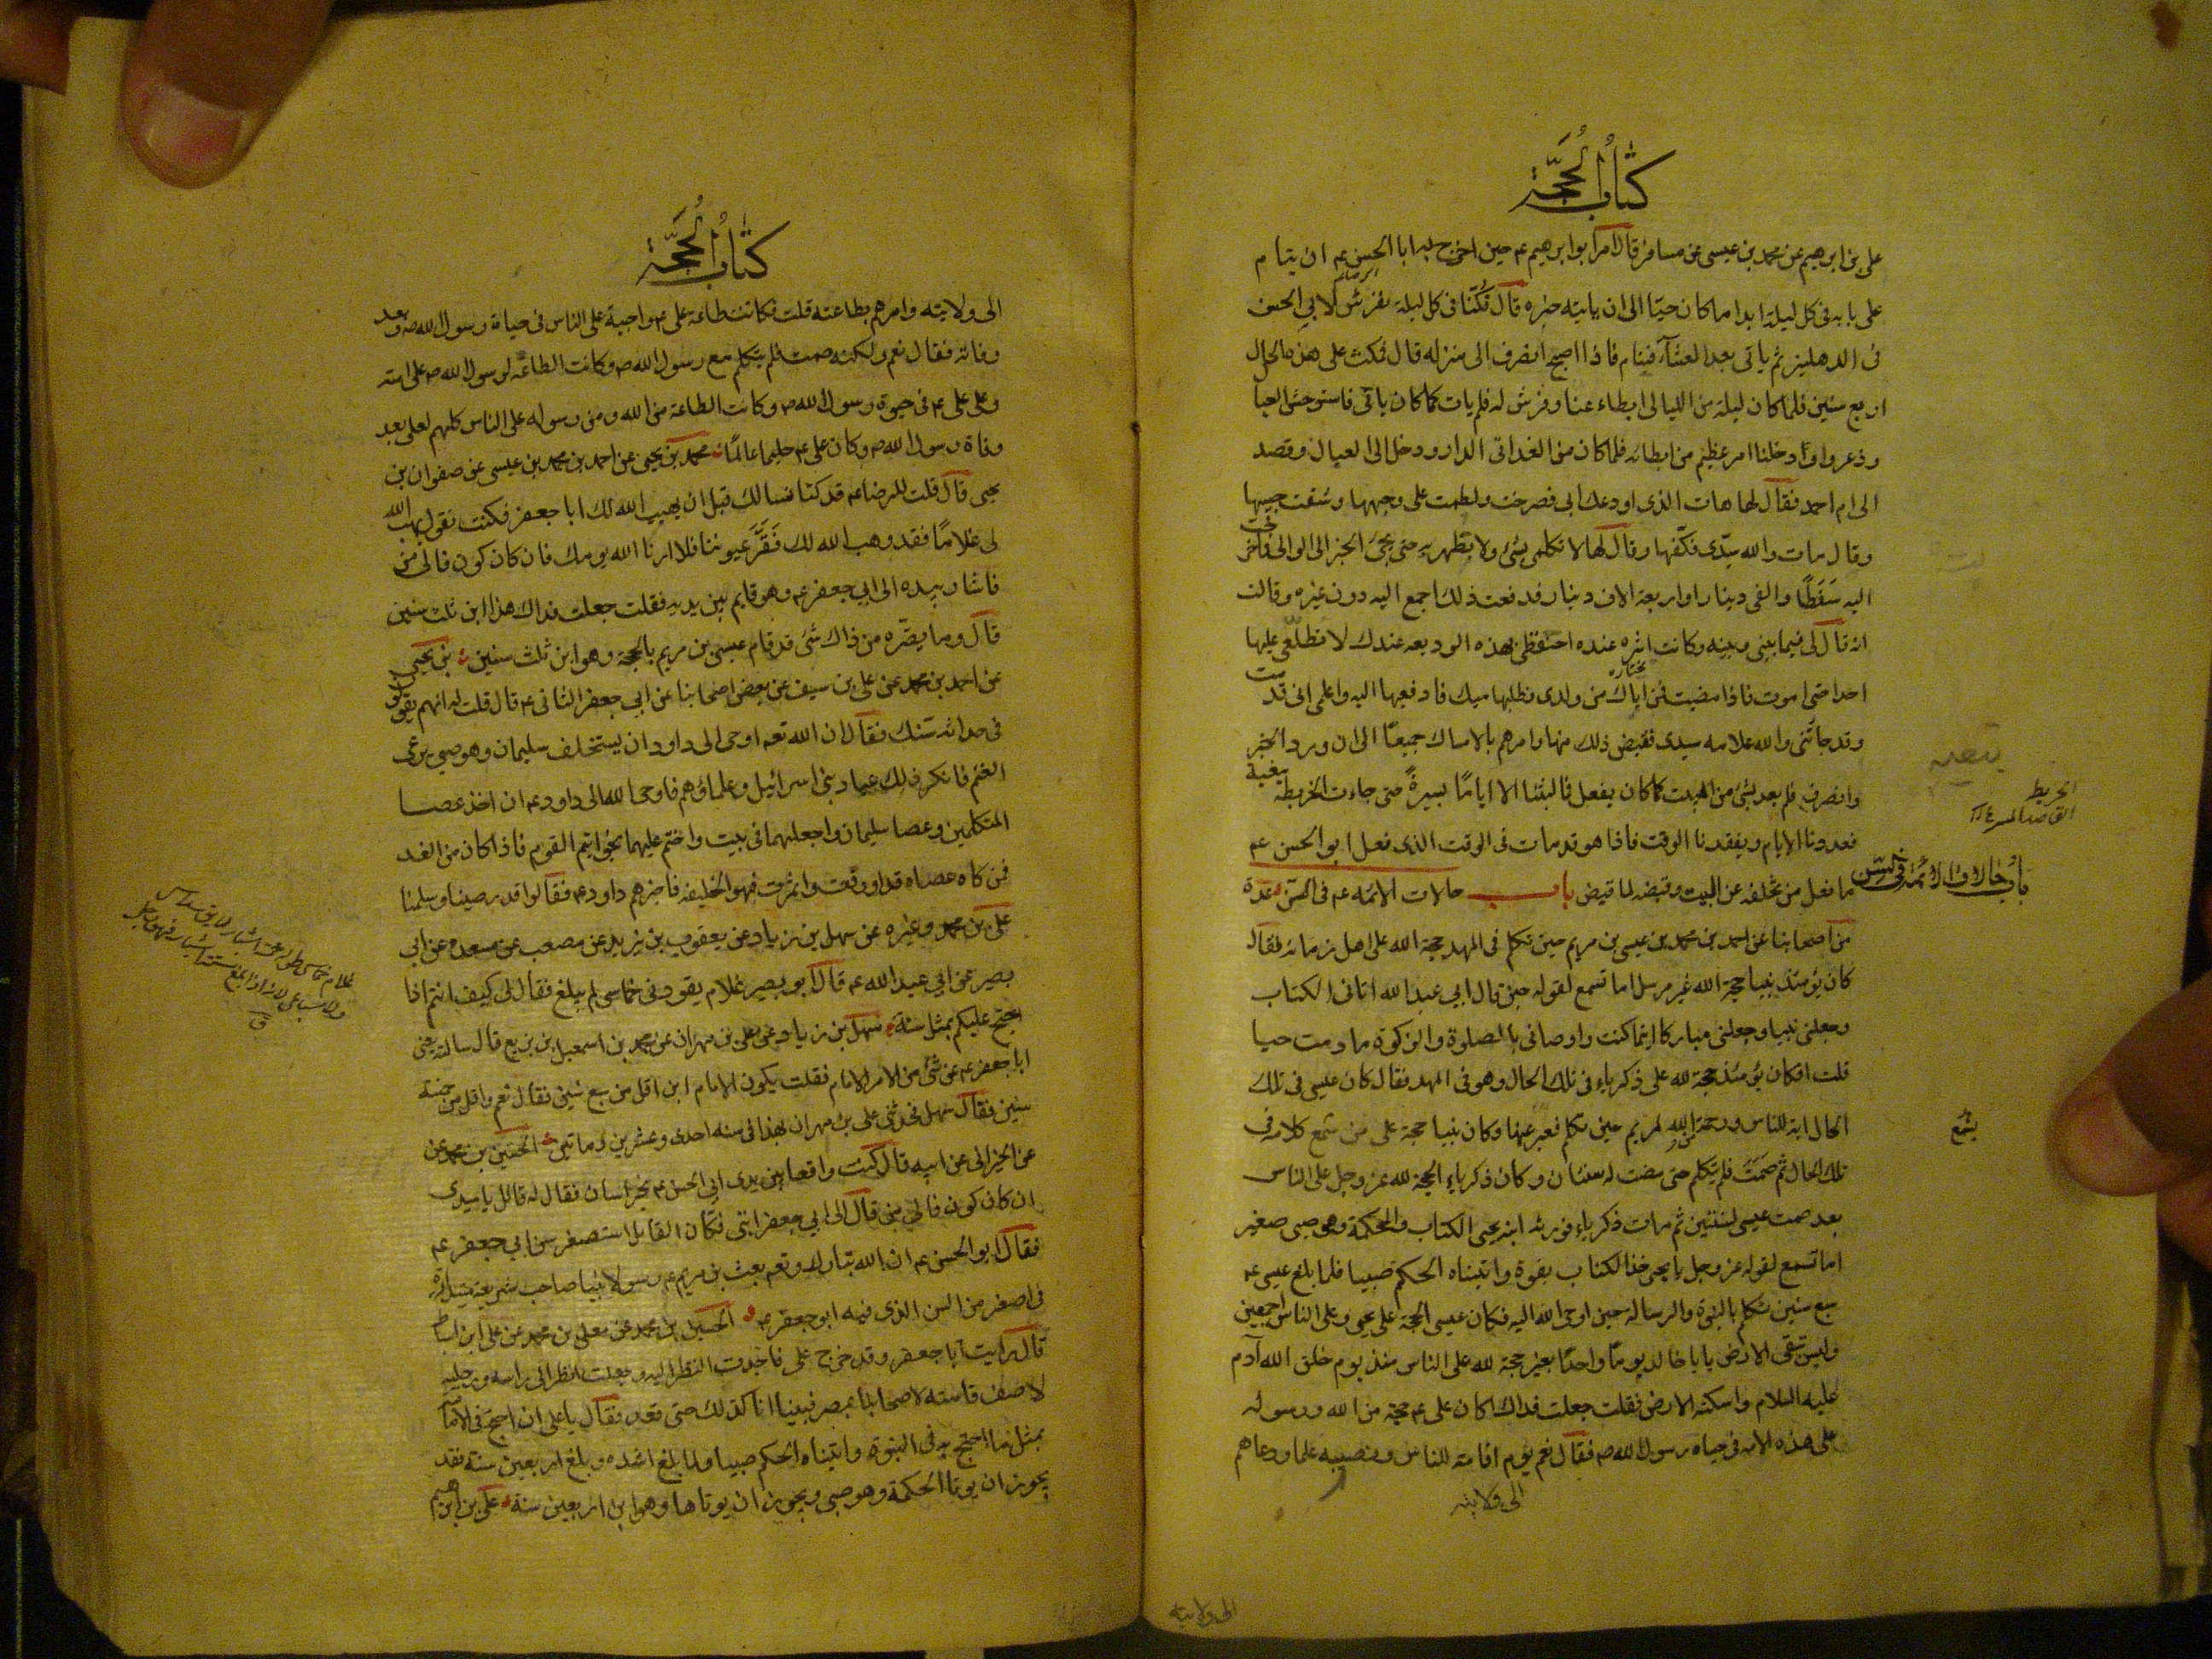 كتاب الحجة
على بن ابرهيم عن محمد بن عيسى عن مسافر قال امر ابو ابرهيم ع حين اخرج به ابا الحسن ع ان ينام
على بابه فى كل ليلة ابدا ما كان حيّا الى ان ياتيه خبره قال فكنّا فى كل ليلة نفرش لابي الحسن
فى الدهليز ثم ياتى بعد العشآء فينام فاذا اصبح انصرف الى منزله قال فمكث على هذه الحال
اربع سنين فلما كان ليلة من الليالى ابطاء عنا وفرش له فلم يات كما كان ياتى فاستوحش العيا
وذعروا ودخلنا امر عظيم من ابطائه فلما كان من الغد اتى الدار ودخل الى العيال وقصد
الى ام احمد فقال لها هات الذى اودعك ابى فصرخت ولطمت على وجهها وشقت جيبها
وقال مات والله سيّدى فكفّها وقال لها لا تكلمى بشئ ولا تظهريه حتى يجئ الخبر الى الوالى فاخرجت
اليه سَفَطًا والفى دينار او اربعة الاف دينار فدفعت ذلك اجمع اليه دون غيره وقالت
انه قال لى فيما بينى وبينه وكانت اثره عنده احتفظى بهذه الوديعه عندك لا تطلّعى عليها
احدا حتى اموت فاذا مضيت فمن اتاك من ولدى فطلبها منك فادفعيها اليه واعلمى انى قد مت
وقد جاتنى والله علامه سيدى فقبض ذلك منها وامرهم بالامساك جميعًا الى ان ورد الخبر
وانصرف فلم يعد بشئ من المبيت كما كان يفعل فما لبثنا الا ايامًا يسيرةً حتى جاءت الخريطة بنعيه
فعددنا الايام وتفقدنا الوقت فاذا هو قد مات فى الوقت الذى فعل ابو الحسن ع
ما فعل من تخلفه عن المبيت وقبضه لما قبض باب حالات الائمه ع فى السن عدة
من اصحابنا عن احمد بن محمد بن عيسى بن مريم حين تكلم فى المهد حجة الله على اهل زمانه فقال
كان يومئذ نبيا حجة الله غير مرسل اما تسمع لقوله حين قال ابي عبد الله اتانى الكتاب
وجعلنى نبيا وجعلنى مباركا اينما كنت واوصانى بالصلوة والزكوة ما دمت حيا
قلت افكان يومئذ حجة لله على ذكرياء فى تلك الحال وهو فى المهد فقال كان عيسى فى تلك
الحال اية للناس ورحمة من الله لمريم حين تكلم فعبر عنها وكان نبيا حجة على من سمع كلامه فى
تلك الحال ثم صَمَتَ فلم يتكلم حتى مضت له سنتان وكان ذكرياء الحجة لله عز وجل على الناس
بعد صمت عيسى لسنتين ثم مات ذكرياء فورثه ابنه يحيى الكتاب والحكمة وهو صبى صغير
اما تسمع لقوله عز وجل يا يحيى خذ الكتاب بقوة واتيناه الحكم صبيا فلما بلغ عيسى ع
سبع سنين تكلم بالنبوة والرسالة حين اوحى الله اليه فكان عيسى الحجة على يحيى وعلى الناس اجمعين
وليس تبقى الارض يا با خالد يومًا واحدًا بغير حجة لله على الناس منذ يوم خلق الله آدم
عليه السلام واسكنه الارض فقلت جعلت فداك اكان على ع حجة من الله ورسوله
على هذه الامه فى حياه رسول الله ص فقال نعم يوم اقامه للناس ونصيبه علما ودعاهم
الى ولايته
الخريطة
يسمع
الى ولايته
كتاب الحجة
الى ولايته وامرهم بطاعته قلت فكانت طاعة على ع واجبة على الناس فى حياة رسول الله ص وبعد
وفاته فقال نعم ولكنه صمت فلم يتكلم مع رسول الله ص وكانت الطاعة لرسول الله ص على امته
وعلى على ع فى حيوة رسول الله ص وكانت الطاعة من الله ومن رسوله على الناس كلهم لعلى بعد
وفاة رسول الله ص وكان على ع حليما عالمًا محمد بن يحيى عن احمد بن محمد بن عيسى عن صفوان بن
يحيى قال قلت للرضا ع قد كنا نسالك قبل ان يهب الله لك ابا جعفر فكنت تقول يهب الله
لى غلامًا فقد وهب الله لك فَقَرَّ عيوننا فلا ارنا الله يومك فان كان كون فالى من
فاشار بيده الى ابي جعفر ع وهو قايم بين يديه فقلت جعلت فداك هذا ابن ثلث سنين
قال وما يضرّه من ذاك شئ قد قام عيسى بن مريم بالحجة وهو ابن ثلث سنين بن يحيى
عن احمد بن محمد عن على بن سيف عن بعض اصحابنا عن ابي جعفر الثانى ع قال قلت له انهم يقولون
فى حداثه سنك فقال ان الله تعه اوحى الى داود ان يستخلف سليمان وهو صبى يرعى
الغنم فانكر ذلك عباد بنى اسرائيل وعلماؤهم فاوحى الله الى داود ع ان اخذ عصا
المتكلمين وعصا سليمان واجعلهما فى بيت واختم عليهما بخواتيم القوم فاذا كان من الغد
فمن كاه عصاه قد اورقت واثمرت فهو الخليفه فاخبرهم داود ع فقالوا قد رضينا وسلمنا
على بن محمد وغيره عن سهل بن زياد عن يعقوب بن يزيد عن مصعب عن مسعده عن ابى
بصير عن ابي عبد الله ع قال ابو بصير غلام يقودنى خماسى لم يبلغ فقال لى كيف انتم اذا
احتج عليكم بمثل سنة سهل بن زياد عن على بن مهران عن محمد بن اسمعيل بن بزيع قال سالته يعنى
ابا جعفر ع عن شئ من الامر الامام فقلت يكون الامام ابن اقل من سبع سنين فقال نعم واقل من خمسة
سنين فقال سهل فحدثنى على بن مهران بهذا فى سنه احدى وعشرين وماتين الحسين بن محمد عن
عن الخيزانى عن ابيه قال كنت واقفا بين يدى ابي الحسن ع بخراسان فقال له قائل يا سيدى
ان كان كون فالى من قال الى ابي جعفر ابنى فكان القايل استصغر سن ابي جعفر ع
فقال ابو الحسن ع ان الله تبارك وتعه بعث بن مريم ع رسولا نبيا صاحب شريعة مبتداة
فى اصغر من السن الذى فيه ابو جعفر ع الحسين بن محمد عن معلى بن محمد عن على ابن اسباط
قال رايت ابا جعفر وقد خرج على فاخذت النظر اليه وجعلت انظر الى راسه ورجليه
لاصف قامته لاصحابنا بمصر فبينا انا كذلك حتى قعد فقال يا على ان احتج فى الامامة
بمثل ما احتج به فى النبوة واتيناه الحكم صبيا ولما بلغ اشده وبلغ اربعين سنة فقد
يجوز ان يوتا الحكمة وهو صبى ويجوز ان يوتاها وهو ابن اربعين سنة على بن ابرهيم